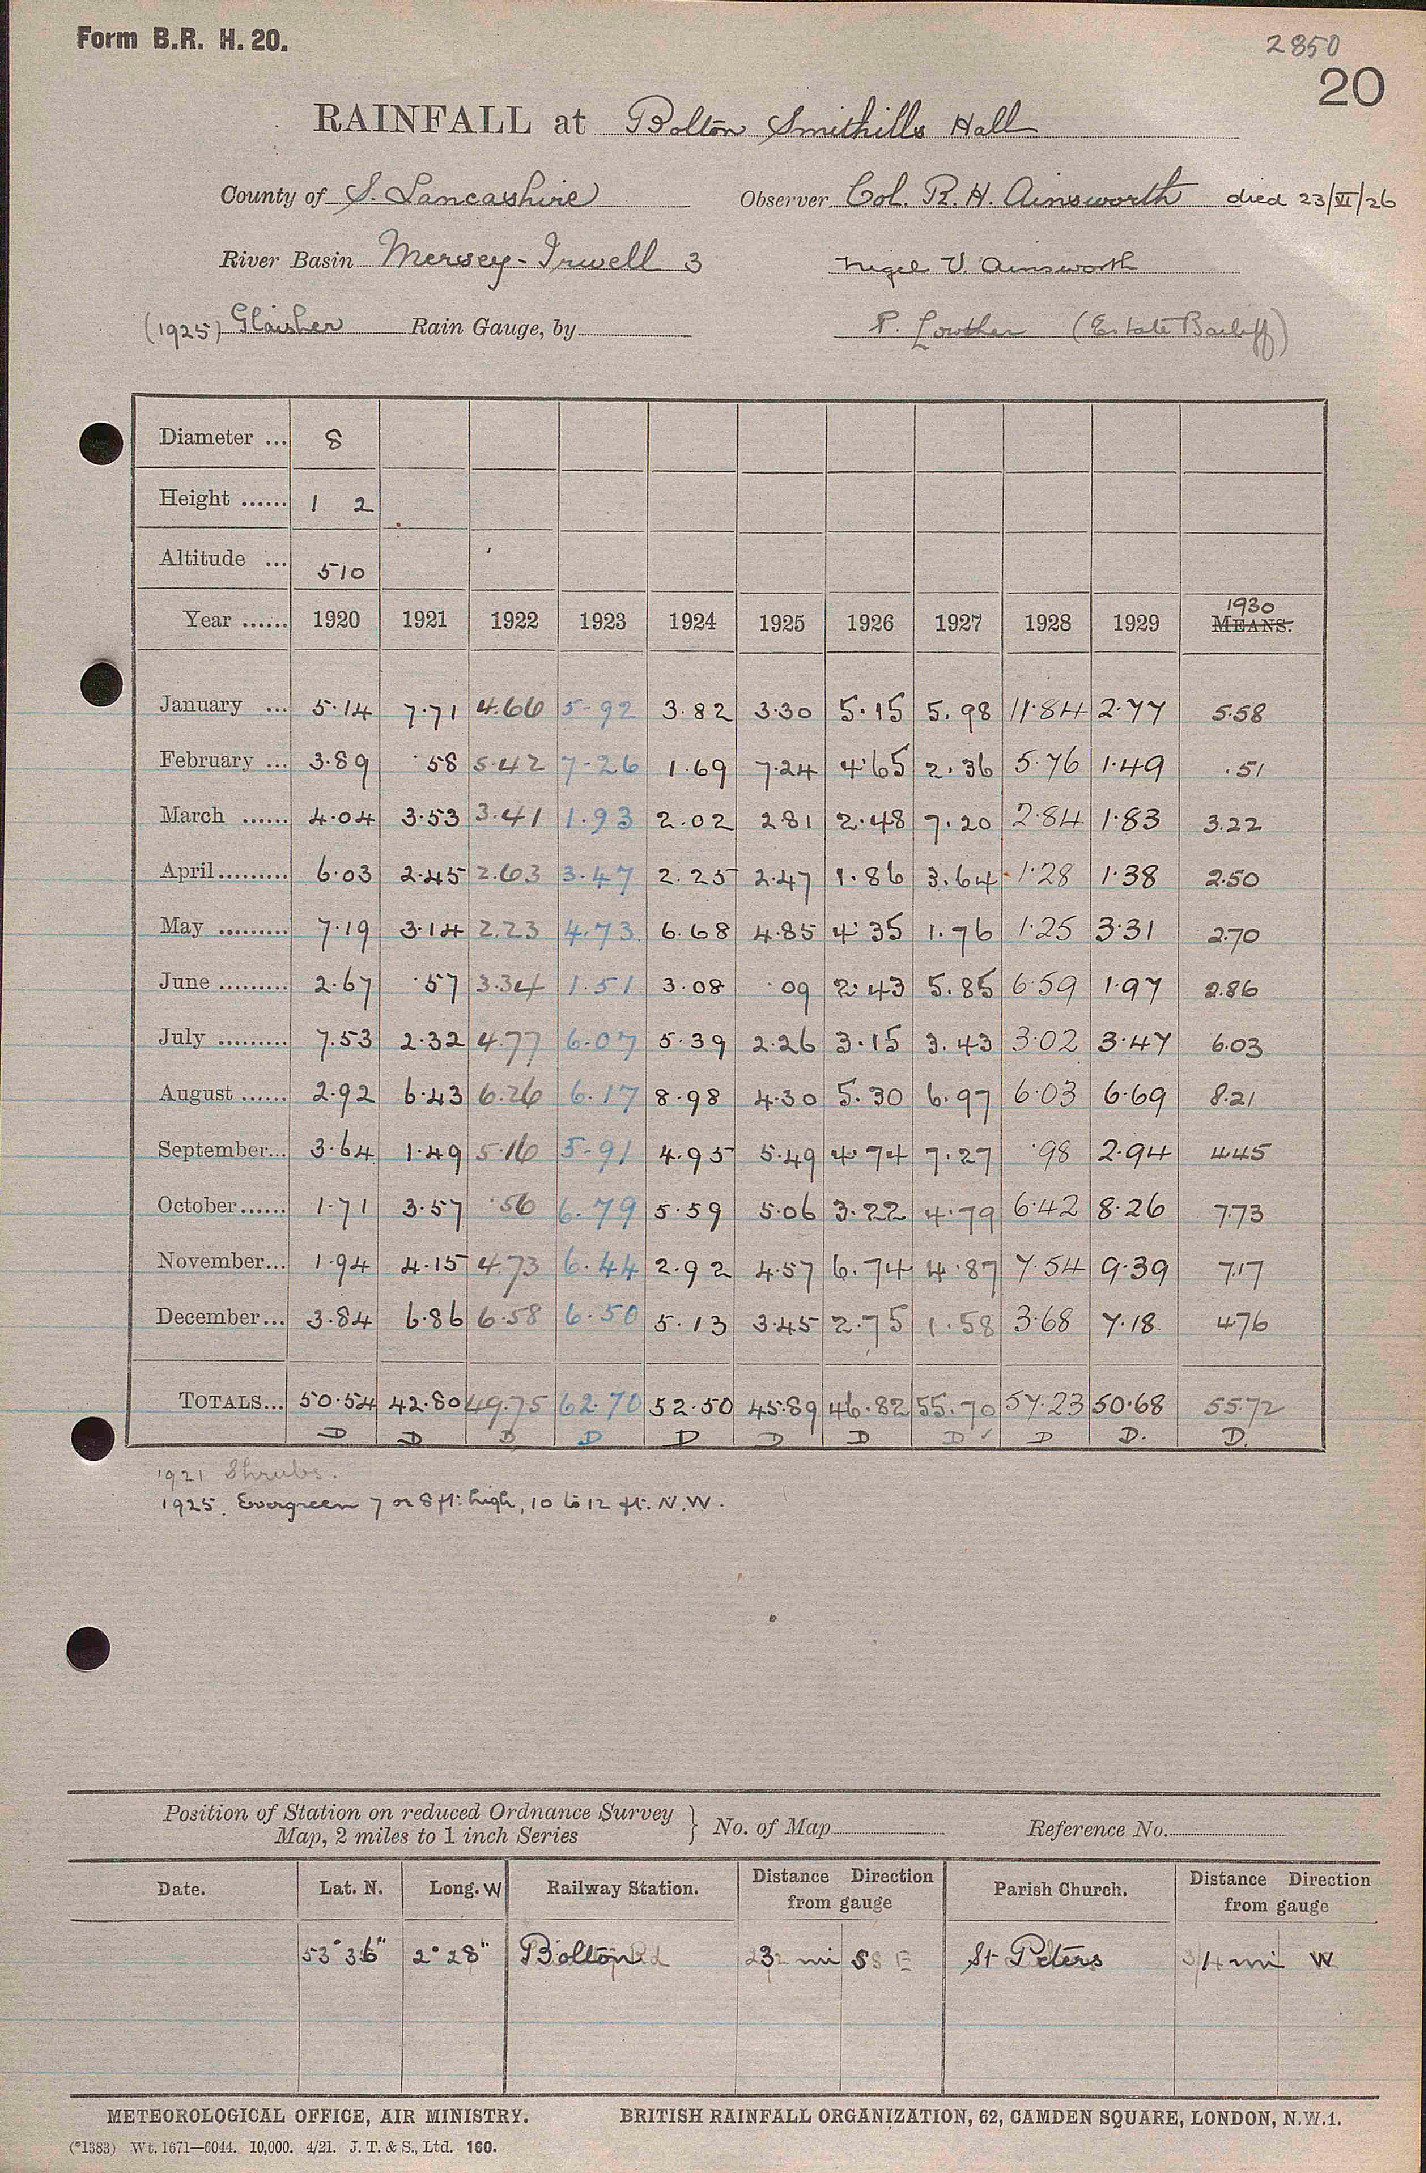 Form B.R. H. 20.
2850
20
RAINFALL at Bolton Smithills Hall
County of S. Lancashire Observer Col. R. H. Ainsworth died 23/VI/26
River Basin Mersey-Irwell 3 Nigel V. Ainsworth
(1925) Glaisher Rain Gauge, by P. Lowther (Estate Bailiff)
Diameter ... 8
Height ...... 1 2
Altitude ... 510
1930
Year ...... 1920 1921 1922 1923 1924 1925 1926 1927 1928 1929 MEANS.
January ... 5.14 7.71 4.66 5.92 3.82 3.30 5.15 5.98 11.84 2.77 5.58
February ... 3.89 .58 5.42 7.26 1.69 7.24 4.65 2.36 5.76 1.49 .51
March ...... 4.04 3.53 3.41 1.93 2.02 2.81 2.48 7.20 2.84 1.83 3.22
April ......... 6.03 2.45 2.63 3.47 2.25 2.47 1.86 3.64 1.28 1.38 2.50
May ......... 7.19 3.14 2.23 4.73 6.68 4.85 4.35 1.76 1.25 3.31 2.70
June ......... 2.67 .57 3.34 1.51 3.08 .09 2.43 5.85 6.59 1.97 2.86
July ......... 7.53 2.32 4.77 6.07 5.39 2.26 3.15 3.43 3.02 3.47 6.03
August ...... 2.92 6.43 6.26 6.17 8.98 4.30 5.30 6.97 6.03 6.69 8.21
September... 3.64 1.49 5.16 5.91 4.95 5.49 4.74 7.27 .98 2.94 4.45
October ...... 1.71 3.57 .56 6.79 5.59 5.06 3.22 4.79 6.42 8.26 7.73
November... 1.94 4.15 4.73 6.44 2.92 4.57 6.74 4.87 7.54 9.39 7.17
December... 3.84 6.86 6.58 6.50 5.13 3.45 2.75 1.58 3.68 7.18 4.76
TOTALS... 50.54 42.80 49.75 62.70 52.50 45.89 46.82 55.70 57.23 50.68 55.72
D D D D D D D D ✓ D D. D.
1921 Shrubs.
1925. Evergreen 7 or 8 ft. high, 10 to 12 ft. N.W.
Position of Station on reduced Ordnance Survey
Map, 2 miles to 1 inch Series } No. of Map Reference No.
Date. Lat. N. Long. W Railway Station. Distance Direction from gauge Parish Church. Distance Direction from gauge
53° 36" 2° 28" Bolton mi S St Peters 3/4 mi W
METEOROLOGICAL OFFICE, AIR MINISTRY. BRITISH RAINFALL ORGANIZATION, 62, CAMDEN SQUARE, LONDON, N.W.1.
(*1383) Wt. 1671—6044. 10,000. 4/21. J. T. & S., Ltd. 160.